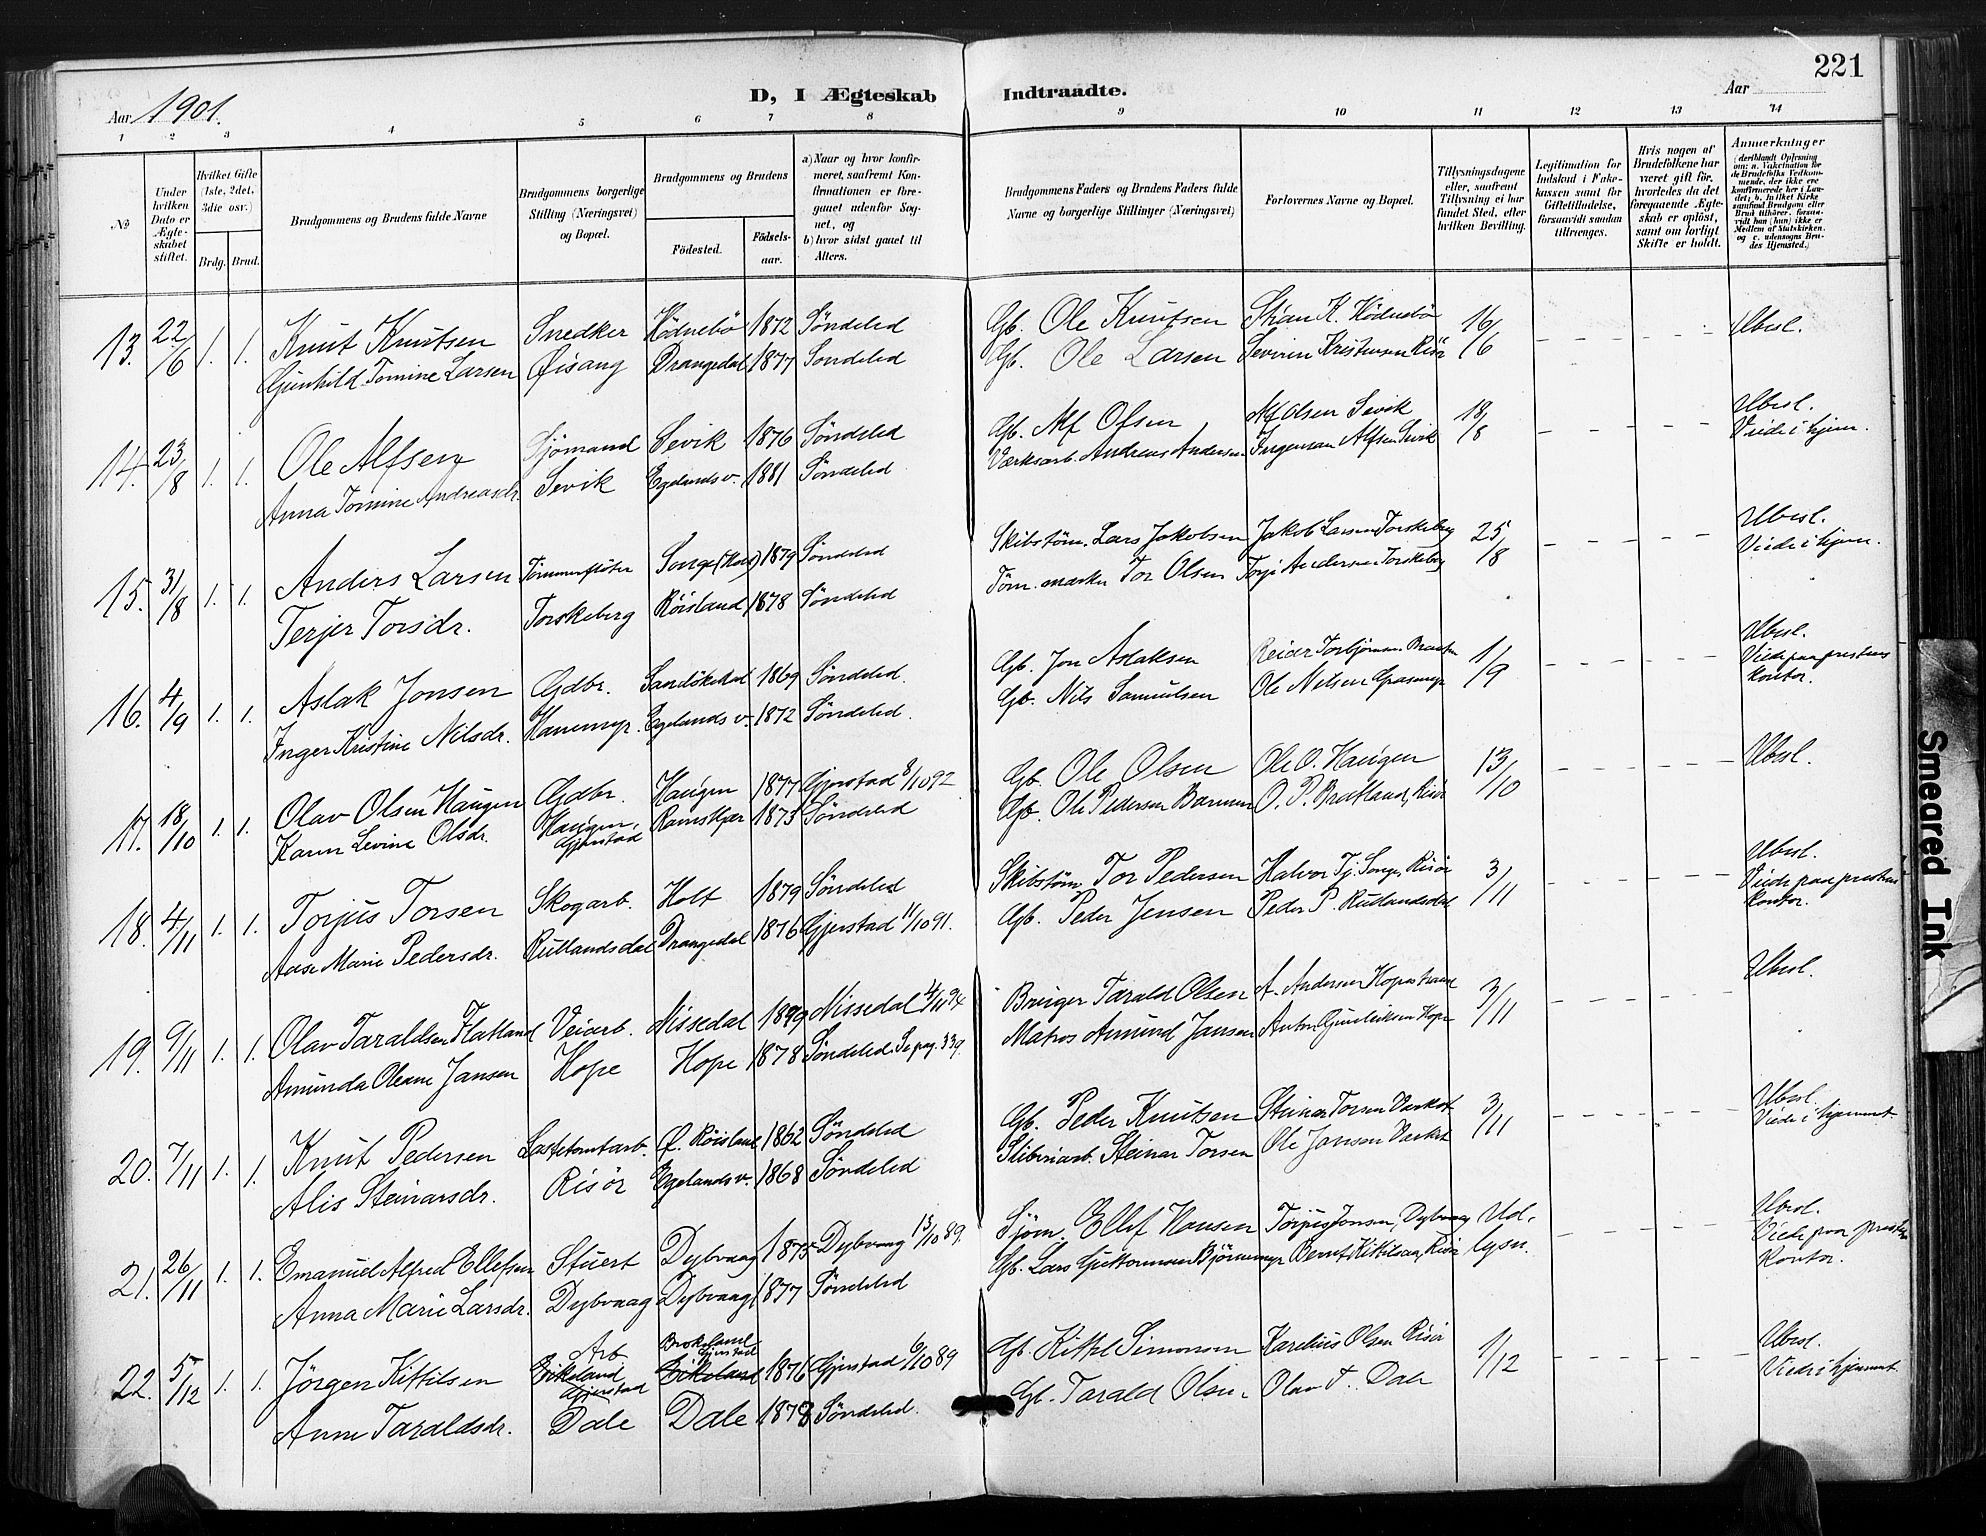 221
Aar 1901.
D, I Ægteskab Indtraadte.
Aar
1 2 3 4 5 6 7 8 9 10 11 12 13 14
No
Under hvilken Dato er Ægteskabet stiftet.
Hvilket Gifte (1ste, 2det, 3die osv.)
Brdg. Brud.
Brudgommens og Brudens fulde Navne
Brudgommens borgerlige Stilling (Næringsvei) og Bopæl.
Brudgommens og Brudens
Födested.
Födselsaar.
a) Naar og hvor konfirmeret, saafremt Konfirmationen er foregaaet udenfor Sognet, og
b) hvor sidst gaaet til Alters.
Brudgommens Faders og Brudens Faders fulde Navne og borgerlige Stillinger (Næringsvei)
Forlovernes Navne og Bopæl.
Tillysningsdagene eller, saafremt Tillysning ei har fundet Sted, efter hvilken Bevilling.
Legitimation for Indskud i Enkekassen samt for Giftetilladelse, forsaavidt saadan tiltrænges.
Hvis nogen af Brudefolkene har været gift før, hvorledes da det foregaaende Ægteskab er oplöst, samt om lovligt Skifte er holdt.
Anmærkninger
(deriblandt Oplysning om: a. Vakcination for de Brudefolks Vedkommende, der ikke ere konfirmerede her i Landet; b. hvilket Kirkesamfund Brudgom eller Brud tilhörer, forsaavidt han (hun) ikke er Medlem af Statskirken. og c. udensogns Brudes Hjemsted.)
13. 22/6 1. 1. Knut Knutsen Snedker Hödnebö 1872 Söndeled Gb. Ole Knutsen Stian K. Hödnebö 16/6 Ubesl.
Gunhild Tomine Larsen Øisang Drangedal 1877 Söndeled Gb. Ole Larsen Severin Kristensen Risör
14. 23/8 1. 1. Ole Alfsen Sjömand Sevik 1876 Söndeled Gb. Alf Olsen Alf Olsen Sevik 18/8 Ubesl.
Anna Tomine Andreasdr. Sevik Egelands v. 1881 Söndeled Værksarb. Andreas Andersen Ingeman Alfsen Sevik Viede i hjem.
15. 31/8 1. 1. Anders Larsen Tömmerfløter Songe (Holt) 1879 Söndeled Skibstöm. Lars Jakobsen Jakob Larsen Torskeberg 25/8 Ubesl.
Terjer Torsdr. Torskeberg Röisland 1878 Söndeled Töm. mærker Tor Olsen Terje Andersen Torskeberg Viede i hjem.
16. 4/9 1. 1. Aslak Jonsen Gdbr. Sandökedal 1869 Söndeled. Gb. Jon Aslaksen Reider Torbjörnsen 1/9 Ubesl.
Inger Kristine Nilsdr. Hanemyr. Egelands v. 1872 Söndeled. Gb. Nils Samuelsen Ole Nilsen Viede paa prestens kontor.
17. 18/10 1. 1. Olav Olsen Haugen Gdbr. Haugen 1877 Gjerstad 8/10 92 Gb. Ole Olsen Ole O. Haugen 13/10 Ubesl.
Karen Levine Olsdr. Haugen, Gjerstad Ramskjær 1873 Söndeled Gb. Ole Pedersen Barmen O. P. Bratland, Risör
18. 4/11 1. 1. Torjus Torsen Skogarb. Holt 1879 Söndeled Skibstöm. Tor Pedersen Halvor Tj. Songe, Risör 3/11 Ubesl.
Aase Marie Pedersdr. Rutlandsdal Drangedal 1876 Gjerstad 11/10 91. Gb. Peder Jensen Peder P. Rutlandsdal Viede paa prestens kontor.
19. 9/11 1. 1. Olav Taraldsen Flatland Veiarb. Nissedal 1899 Nissedal 4/11 94 Bruger Tarald Olsen A. Andersen Hopestrand 3/11 Ubesl.
Amunda Oleane Jansen Hope Hope 1878 Söndeled. Se pag. 339. Matros Amund Jansen Anton Gundersen Hope
20. 7/11 1. 1. Knut Pedersen Lastetomtarb. Ø. Röisland 1862 Söndeled Gb. Peder Knutsen Steinar Torsen 3/11 Ubesl.
Alis Steinarsdr. Risör Egelands v. 1868 Söndeled Sliberiarb. Steinar Torsen Ole Jansen Viede i hjemmet.
21. 26/11 1. 1. Emanuel Alfred Ellefsen Stuert Dybvaag 1875 Dybvaag 13/10 89. Sjöm. Ellef Hansen Torjus Jonsen, Dybvaag Udlysn. Ubesl.
Anna Marie Larsdr. Dybvaag Dybvaag 1877 Söndeled Gb. Lars Guttormsen Björnemyr Bernt Kittilsen, Risör Viede paa prestens kontor.
22. 5/12 1. 1. Jörgen Kittilsen Arb Eikeland Gjerstad Brokeland Gjerstad Eikeland 1876 Gjerstad 6/10 89 Gb. Kittel Simonsen Karelius Olsen Risör 1/12 Ubesl.
Anne Taraldsdr. Dale Dale 1878 Söndeled. Gb. Tarald Olsen Olav T. Dale Viede i hjemmet.
Smeared Ink